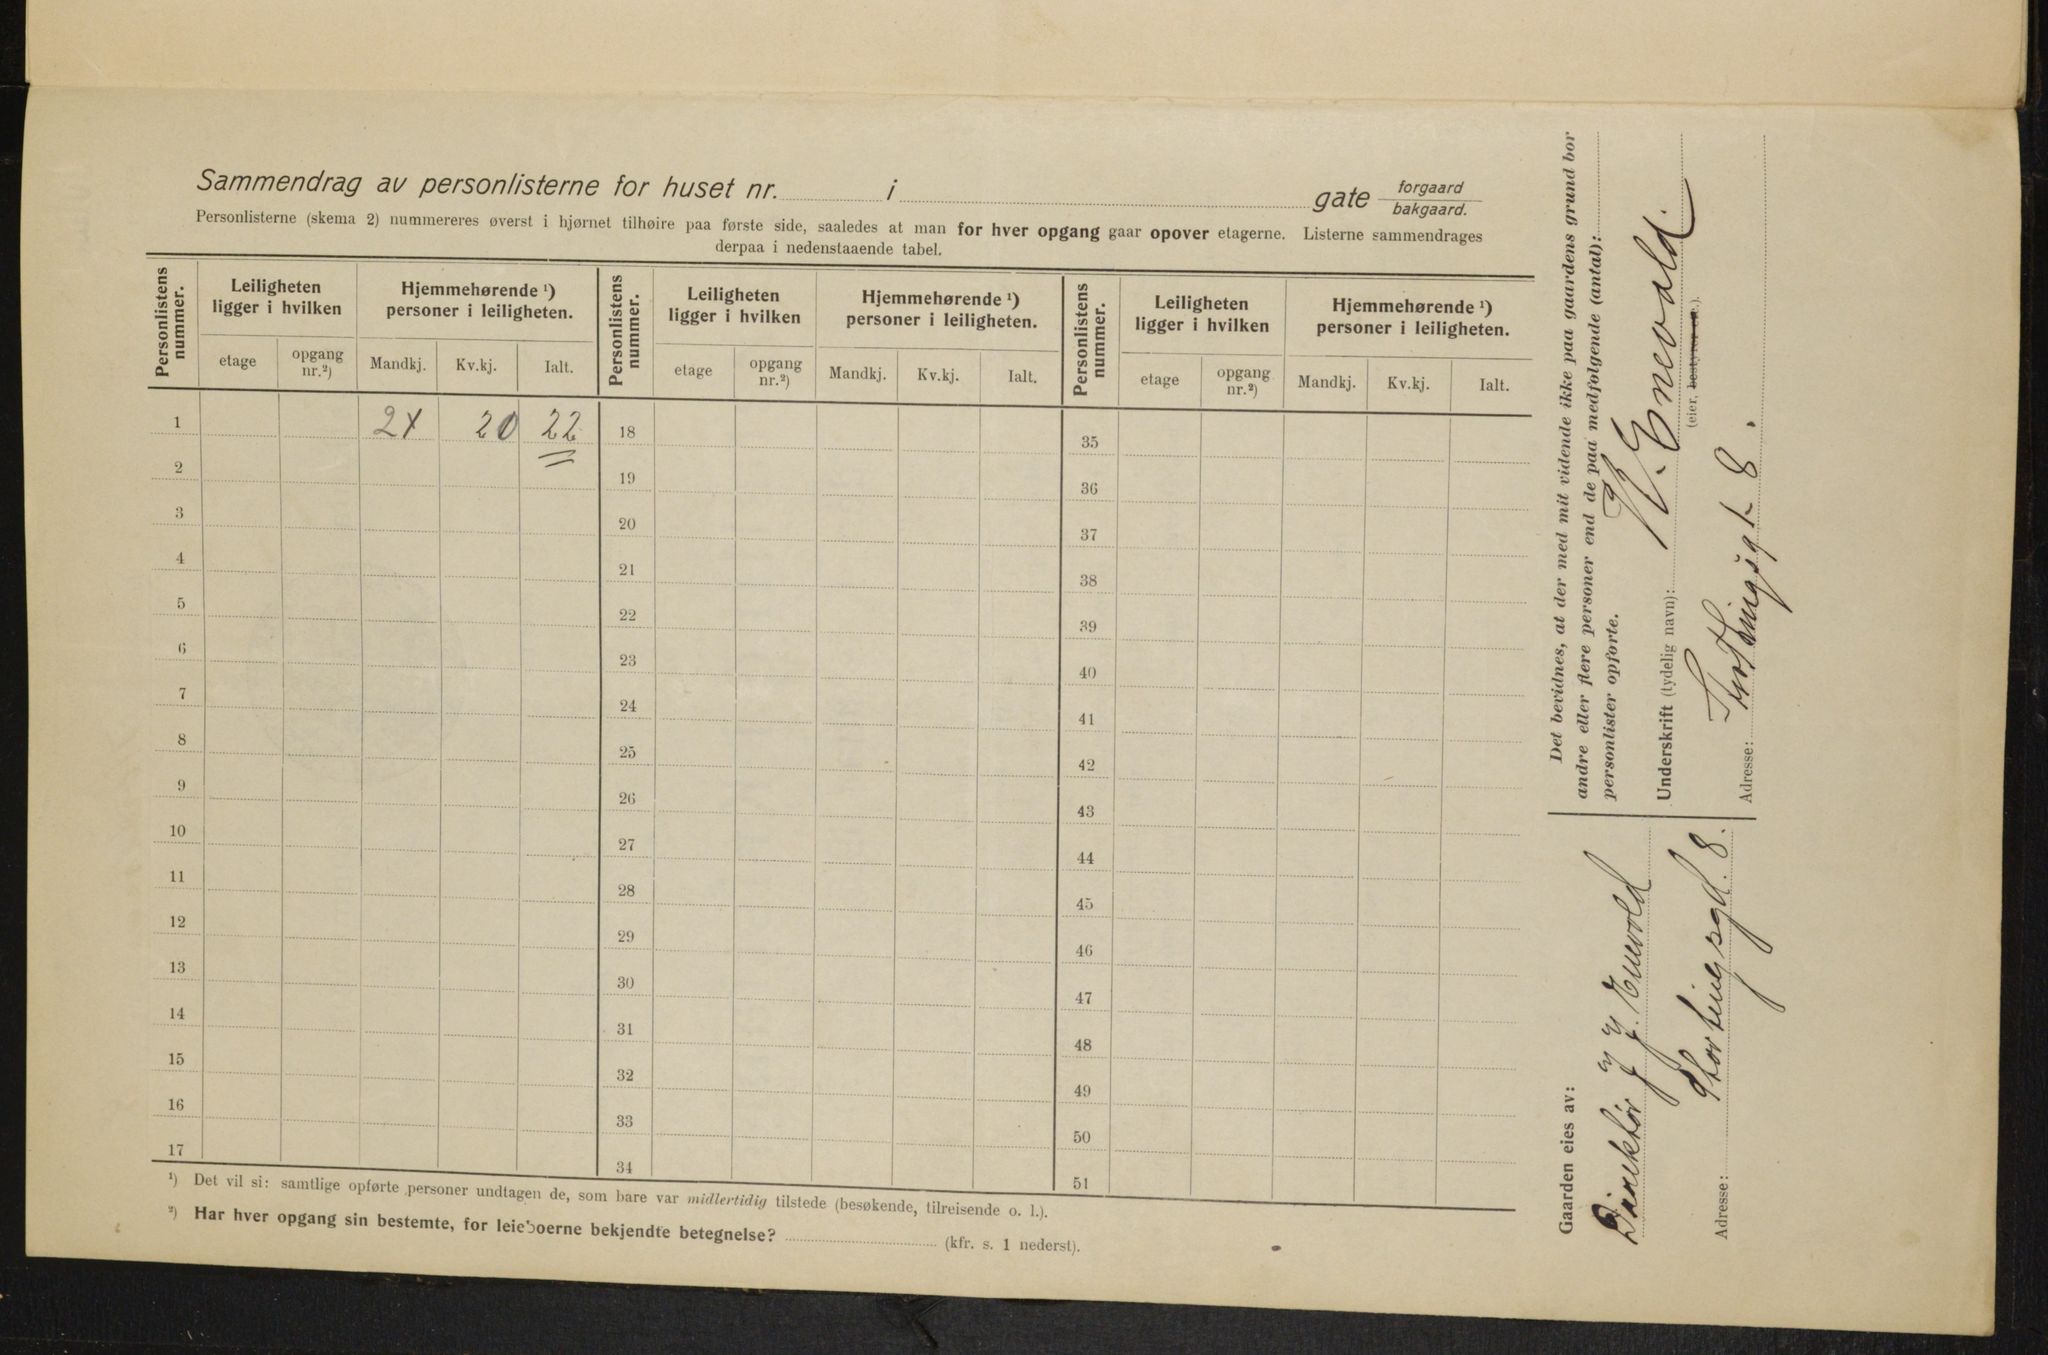 Sammendrag av personlisterne for huset nr. i gate forgaard bakgaard.
Personlisterne (skema 2) nummereres øverst i hjørnet tilhøire paa første side, saaledes at man for hver opgang gaar opover etagerne. Listerne sammendrages
derpaa i nedenstaaende tabel.
Personlistens nummer. Leiligheten ligger i hvilken Hjemmehørende ¹) personer i leiligheten. Personlistens nummer. Leiligheten ligger i hvilken Hjemmehørende ¹) personer i leiligheten. Personlistens nummer. Leiligheten ligger i hvilken Hjemmehørende ¹) personer i leiligheten.
etage opgang nr.²) Mandkj. Kv.kj. Ialt. etage opgang nr.²) Mandkj. Kv.kj. Ialt. etage opgang nr.²) Mandkj. Kv.kj. Ialt.
1 2 20 22 18 35
2 19 36
3 20 37
4 21 38
5 22 39
6 23 40
7 24 41
8 25 42
9 26 43
10 27 44
11 28 45
12 29 46
13 30 47
14 31 48
15 32 49
16 33 50
17 34 51
¹) Det vil si: samtlige opførte personer undtagen de, som bare var midlertidig tilstede (besøkende, tilreisende o. l.).
²) Har hver opgang sin bestemte, for leieboerne bekjendte betegnelse? (kfr. s. 1 nederst).
Det bevidnes, at der med mit vidende ikke paa gaardens grund bor
andre eller flere personer end de paa medfølgende (antal):
personlister opførte.
Underskrift (tydelig navn): Enevold.
(eier, bestyrer ex.).
Adresse: Stortingsgt. 8.
Gaarden eies av:
Direktør J. J. Enevold
Adresse: Stortingsgd. 8.